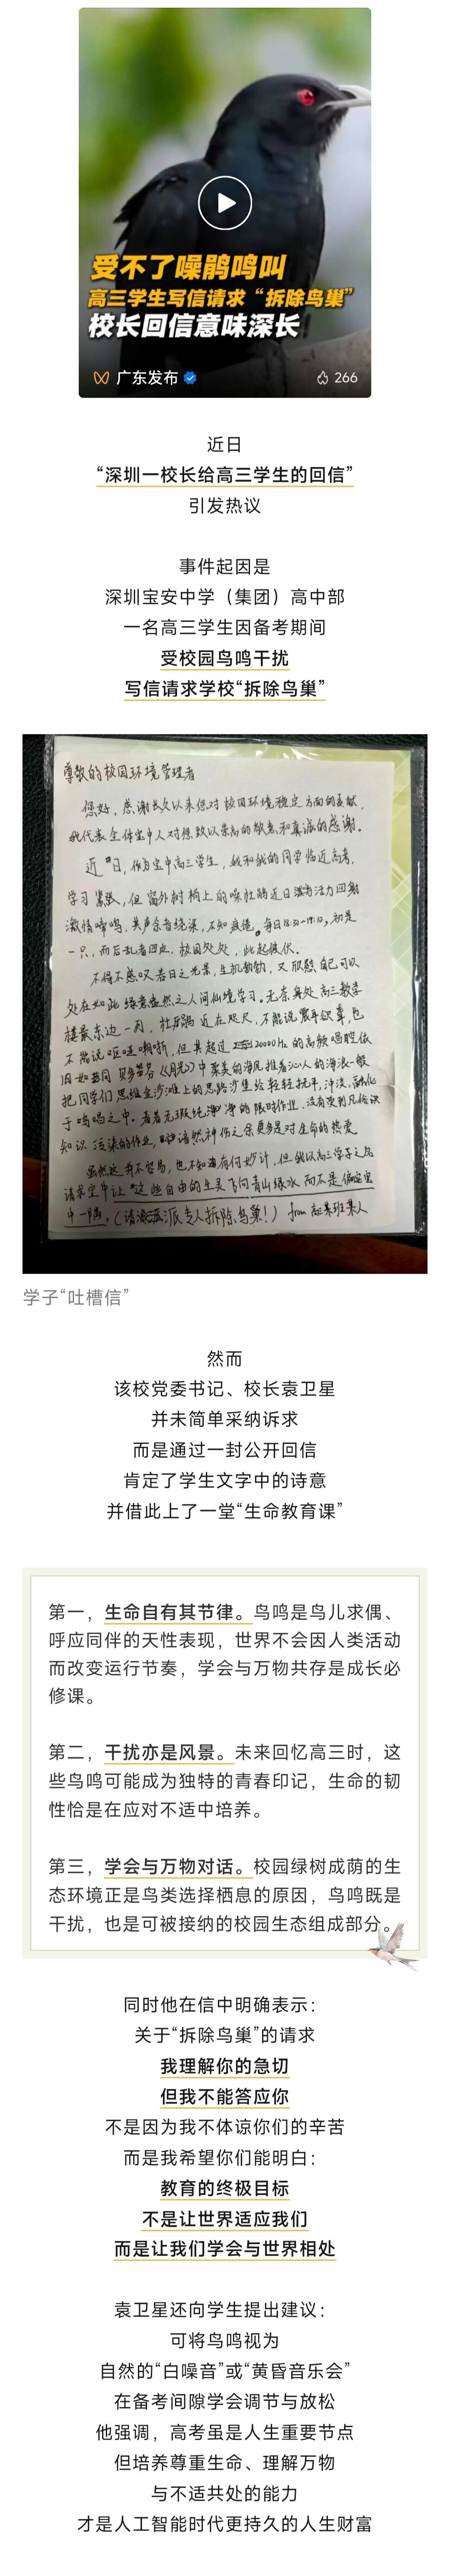 受不了噪鹃鸣叫
高三学生写信请求“拆除鸟巢”
校长回信意味深长
广东发布
266
近日
“深圳一校长给高三学生的回信”
引发热议
事件起因是
深圳宝安中学（集团）高中部
一名高三学生因备考期间
受校园鸟鸣干扰
写信请求学校“拆除鸟巢”
尊敬的校园环境管理者
您好，感谢长久以来您对校园环境稳定方面的贡献，
我代表全体宝中人对您致以崇高的敬意和真诚的感谢。
近日，作为宝中高三学生，我和我的同学临近高考，
学习紧张，但窗外树梢上的噪杜鹃近日活力四射
激情啼鸣，其声余音绕梁，不知疲倦。每日18:30-19:10，初是
一只，而后乱者四应，校园处处，此起彼伏。
不得不感叹春日之光景，生机勃勃，又欣慰自己可以
处在如此绿意盎然之人间仙境学习。无奈身处高三教学
楼最东边一雨，杜鹃近在咫尺，不能说震耳欲聋，也
不能说呕哑嘲哳，但其超过20000Hz的高频唱腔依
旧如同贝多芬《月光》中寒夜的海风推着沁人的海浪一般
把同学们思维金沙滩上的思路沙堡给轻轻抚平，冲淡，融化
于呜咽之中。看着无瑕纯净的限时作业，没有受到凡俗识
知识污染的作业，黯然神伤之余更多是对生命的热爱
虽然这我不容易，也不知有何妙计，但我以高三学子之名
请求宝中让这些自由的生灵飞向青山绿水，而不是偏安宝
中一隅。（请派专人拆除鸟巢！）from 高三某班某人
学子“吐槽信”
然而
该校党委书记、校长袁卫星
并未简单采纳诉求
而是通过一封公开回信
肯定了学生文字中的诗意
并借此上了一堂“生命教育课”
第一，生命自有其节律。鸟鸣是鸟儿求偶、
呼应同伴的天性表现，世界不会因人类活动
而改变运行节奏，学会与万物共存是成长必
修课。
第二，干扰亦是风景。未来回忆高三时，这
些鸟鸣可能成为独特的青春印记，生命的韧
性恰是在应对不适中培养。
第三，学会与万物对话。校园绿树成荫的生
态环境正是鸟类选择栖息的原因，鸟鸣既是
干扰，也是可被接纳的校园生态组成部分。
同时他在信中明确表示：
关于“拆除鸟巢”的请求
我理解你的急切
但我不能答应你
不是因为我不体谅你们的辛苦
而是我希望你们能明白：
教育的终极目标
不是让世界适应我们
而是让我们学会与世界相处
袁卫星还向学生提出建议：
可将鸟鸣视为
自然的“白噪音”或“黄昏音乐会”
在备考间隙学会调节与放松
他强调，高考虽是人生重要节点
但培养尊重生命、理解万物
与不适共处的能力
才是人工智能时代更持久的人生财富